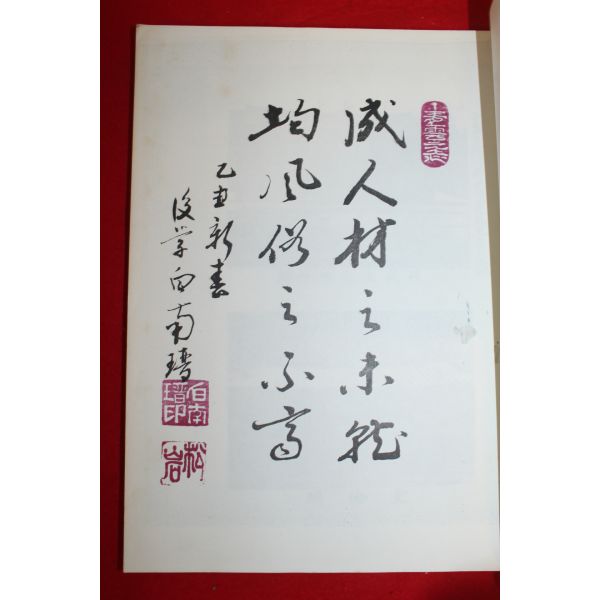 成人材之未就
均風俗之不齊
乙丑新春
後学白南瑨
白南瑨印
松岩